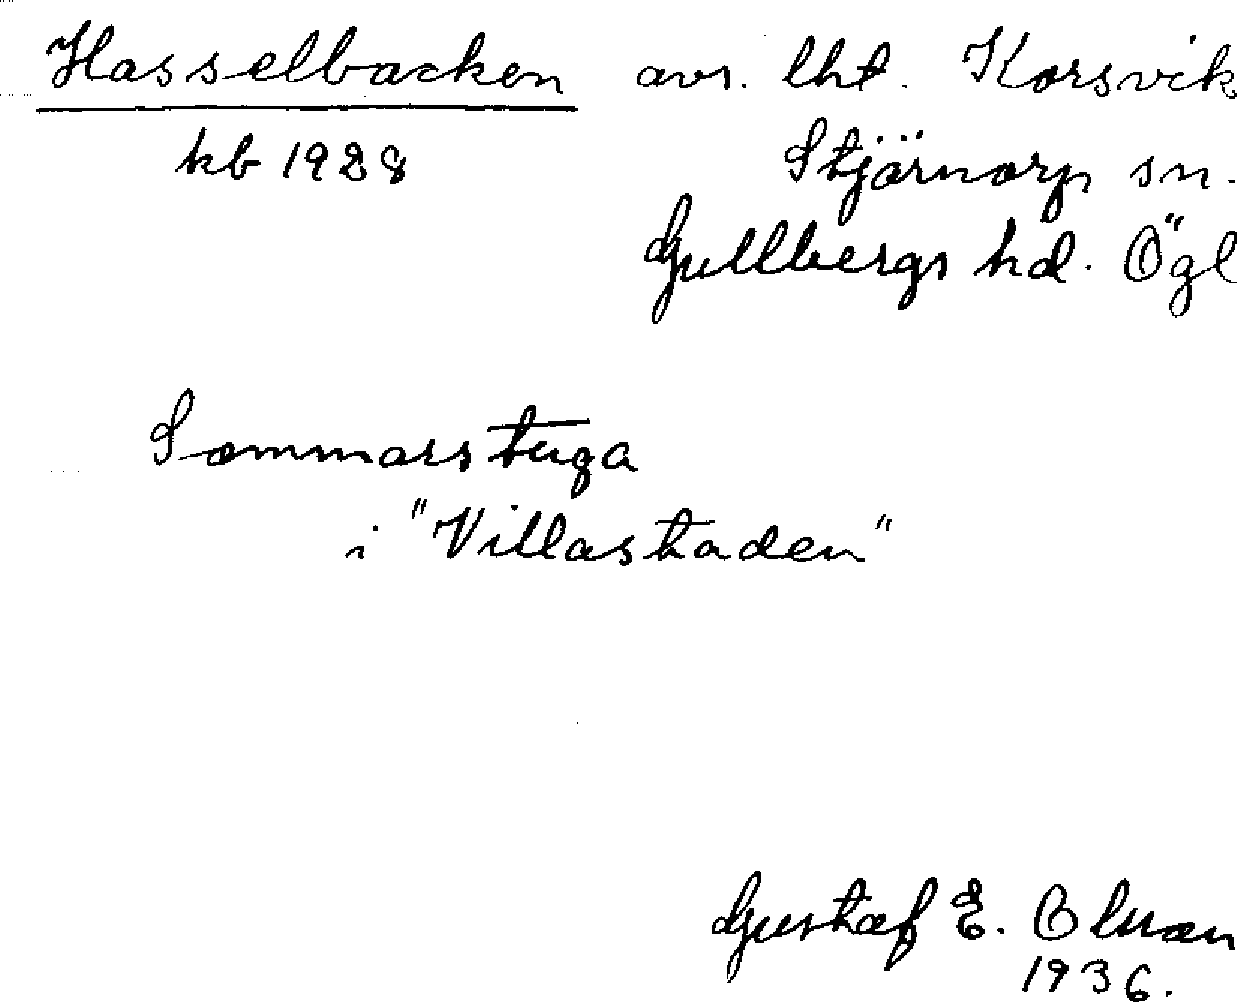 Hasselbacken avs. lht. Korsvik
kb 1928 Stjärnorp sn.
Gullbergs hd. Ögl
Sommarstuga
i "Villastaden"
Gustaf E. Olsson
1936.